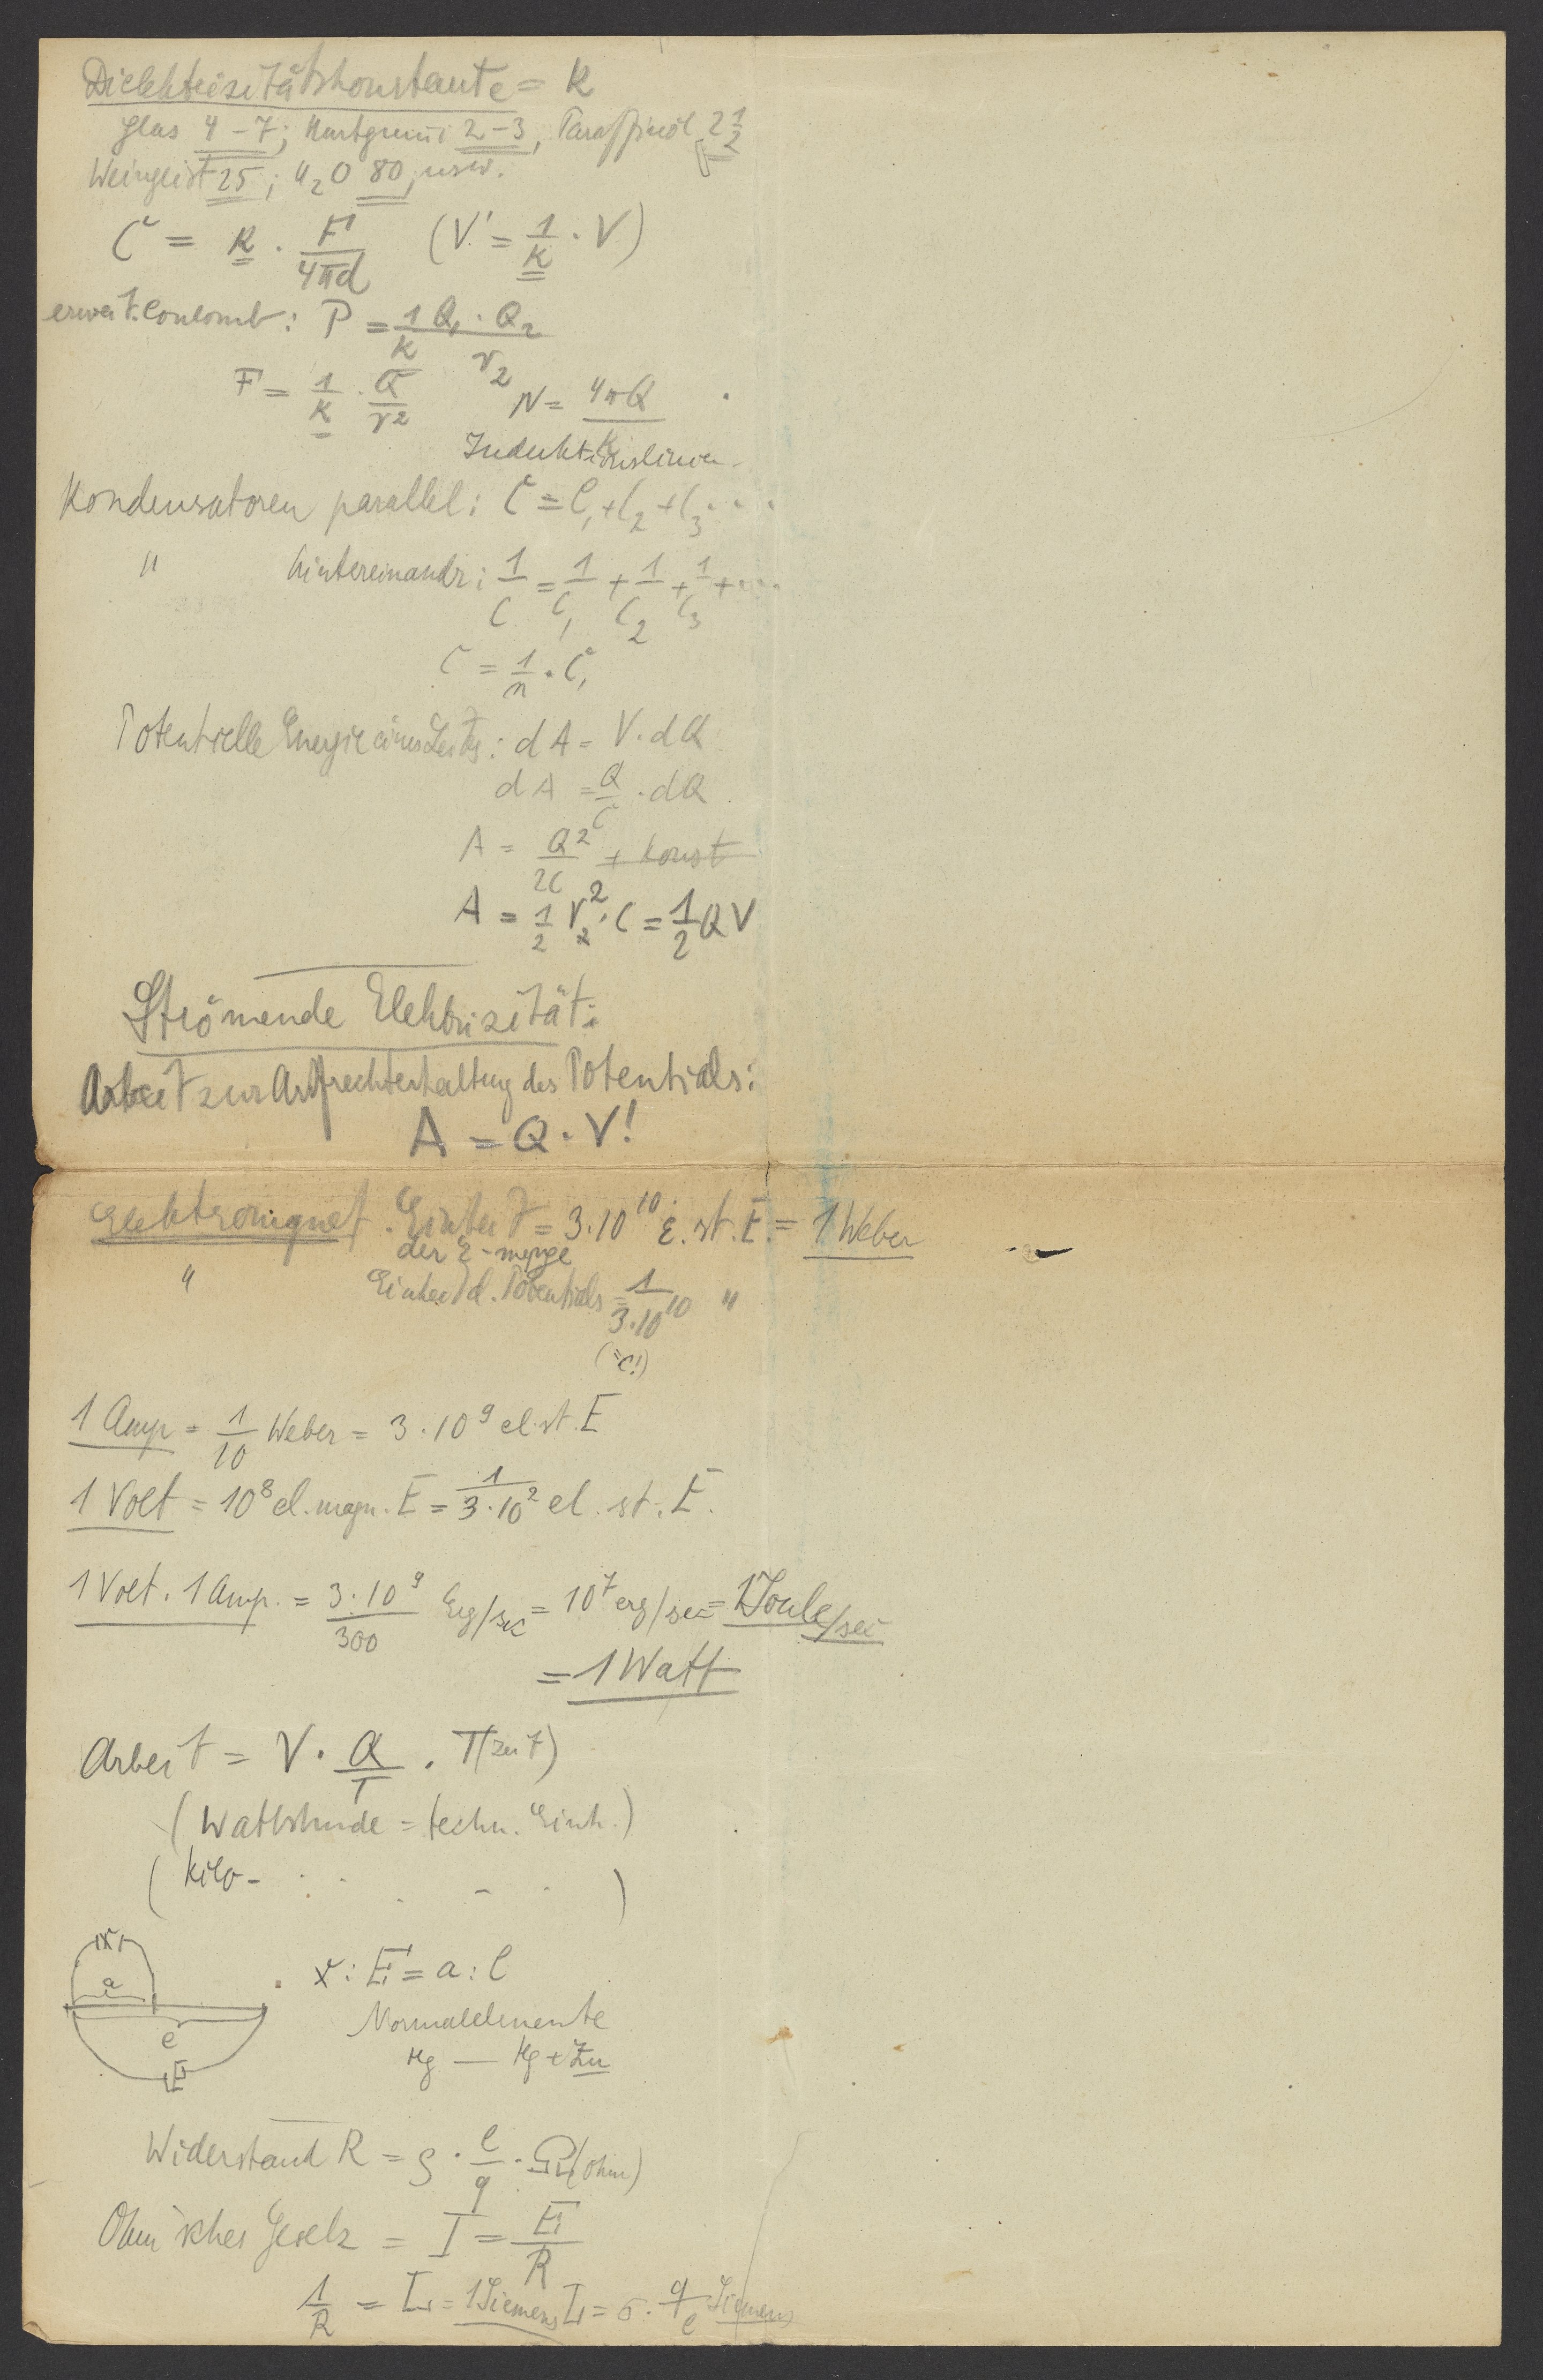 Dielektrizitätskonstante = K
Glas 4-7; Hartgummi 2-3, Paraffinöl 2 1/2
Weingeist 25; H2O 80, usw.
C = K · F/4πd (V' = 1/K · V)
erweit. Coulomb: P = 1/K Q1 · Q2/r2
F = 1/K · Q/r2 N = 4πQ/K
Induktionslinien
Kondensatoren parallel: C = C1 + C2 + C3 ...
" hintereinandr: 1/C = 1/C1 + 1/C2 + 1/C3 + ...
C = 1/n · C1
Potentrelle Energie eines Leiters: dA = V · dQ
dA = Q/C · dQ
A = Q2/2C + Konst
A = 1/2 V2 · C = 1/2 QV
Strömende Elektrizität:
Arbeit zur Aufrechterhaltung des Potentials:
A = Q · V!
Elektromgnet. Einheit = 3·10^10 E. st. E. = 1 Weber
der E-menge
" Einheit d. Potentials = 1/3·10^10 "
(=c!)
1 Amp = 1/10 Weber = 3·10^9 el. st. E
1 Volt = 10^8 el. magn. E = 1/3·10^2 el. st. E.
1 Volt · 1 Amp. = 3·10^9/300 Erg/sec = 10^7 erg/sec = 1 Joule/sec
= 1 Watt
Arbeit = V · Q/T · T (Zeit)
(Wattstunde = techn. Einh.)
(Kilo- · · · - · )
x
a
x : E = a : l
Normalelemente
e
Hg — Hg + Zn
E
Widerstand R = ρ · l/q · Ω (Ohm)
Ohm'sches Gesetz = I = E/R
1/R = L = 1 Siemens L = σ · q/e Siemens